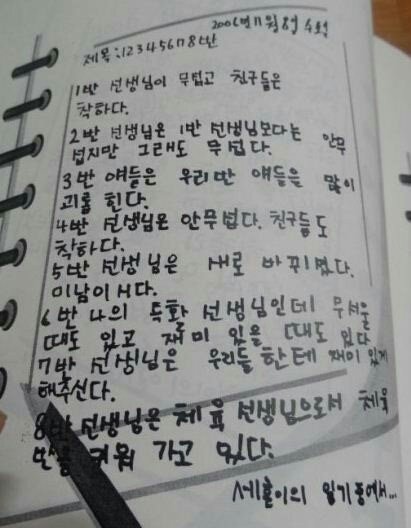 2006년 11월 8일 수요일
제목:12345678반
1반 선생님이 무섭고 친구들은
착하다.
2반 선생님은 1반 선생님보다는 안무
섭지만 그래도 무섭다.
3반 얘들은 우리반 얘들을 많이
괴롭힌다.
4반 선생님은 안무섭다. 친구들도
착하다.
5반 선생님은 새로 바뀌었다.
미남이시다.
6반 나의 특활 선생님인데 무서울
때도 있고 재미 있을 때도 있다
7반 선생님은 우리들 한테 재미 있게
해주신다.
8반 선생님은 체육 선생님으로서 체육
반을 키워 가고 있다.
세훈이의 일기 중에서...